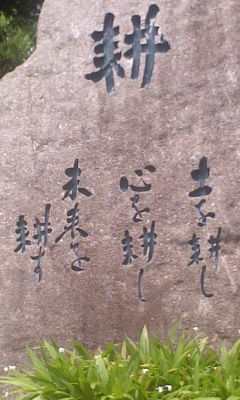 耕
土を耕し
心を耕し
未来を
耕す